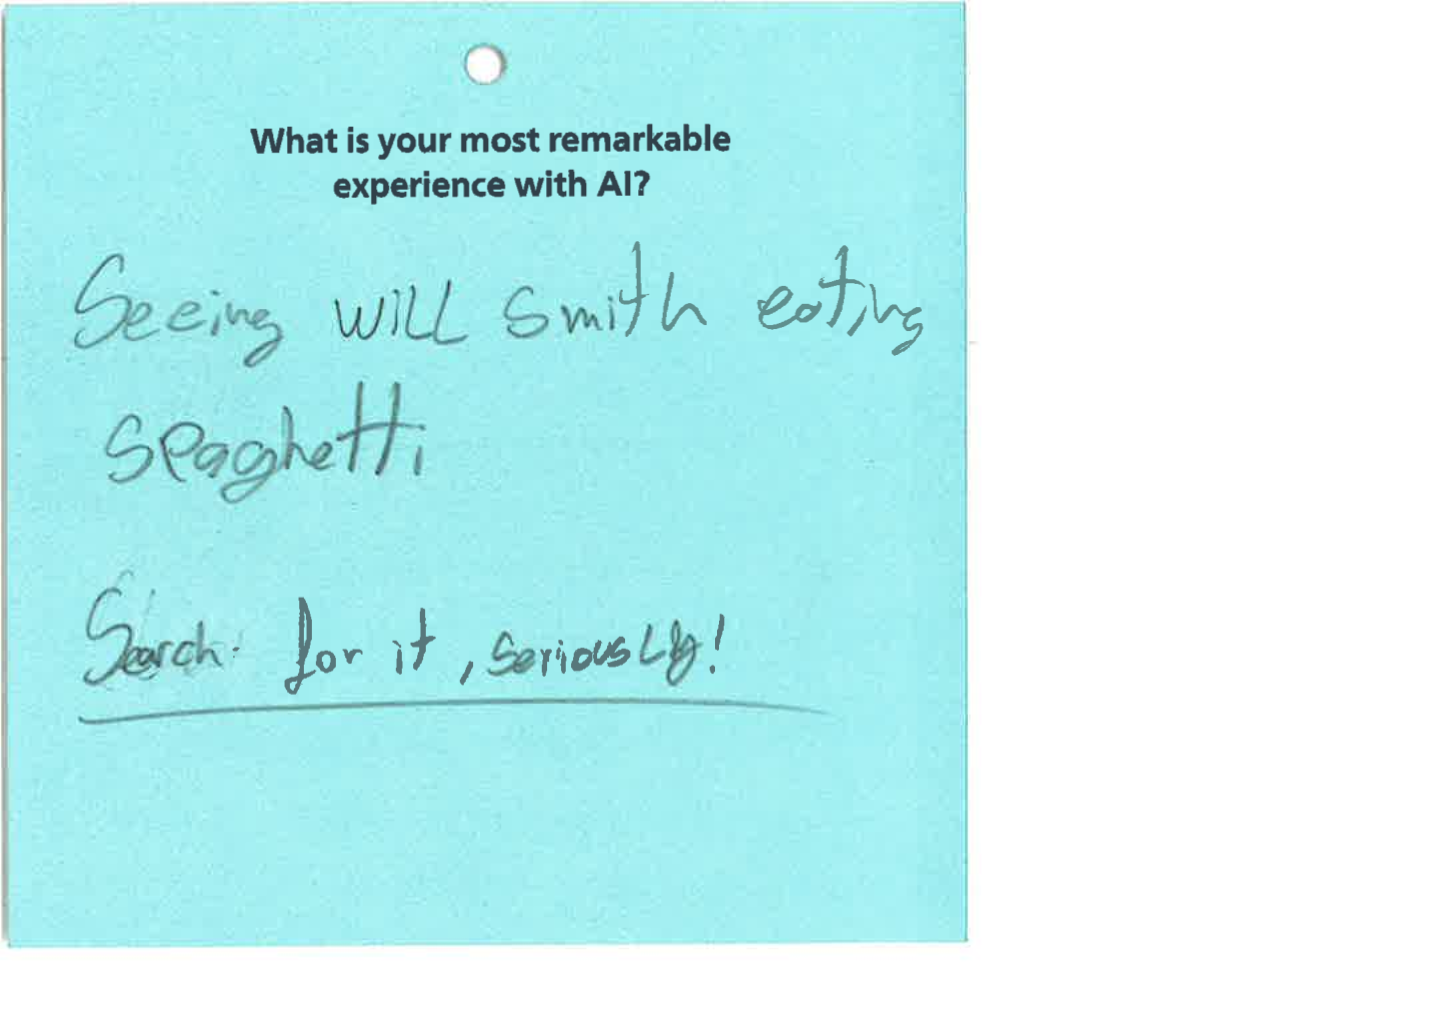 What is your most remarkable
experience with AI?
Seeing will smith eating
spaghetti
Search for it, seriously!